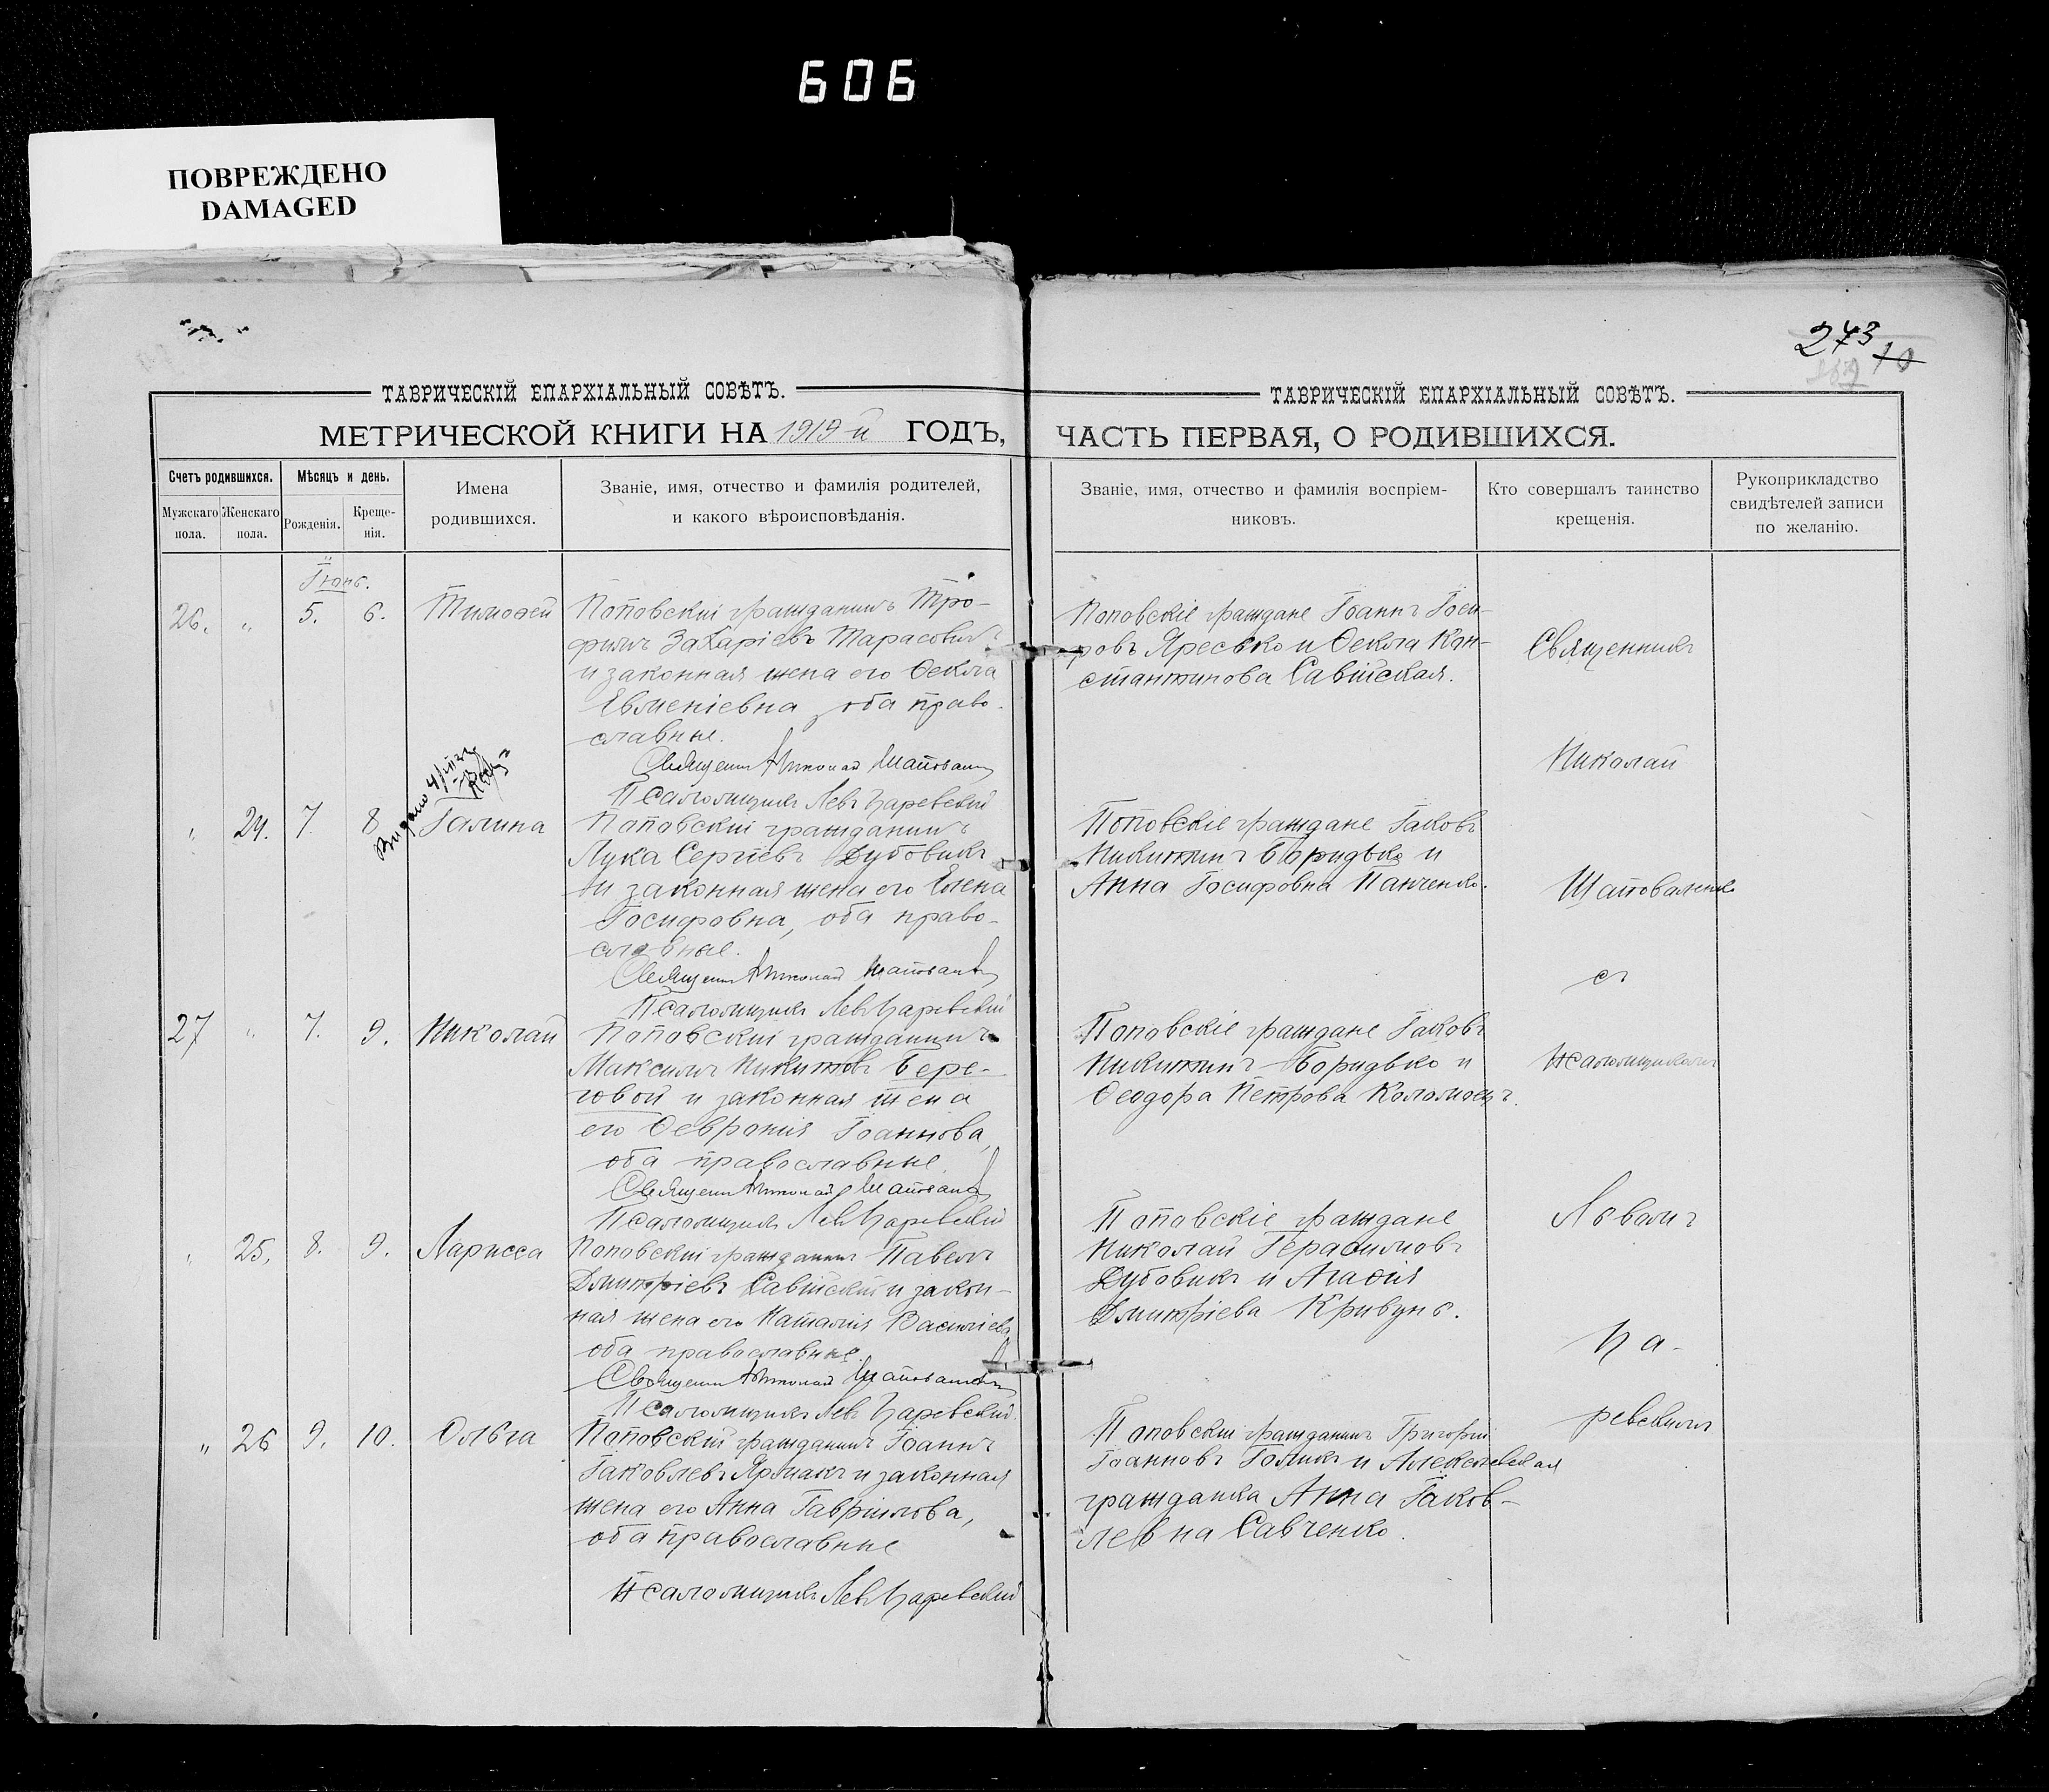 606
ПОВРЕЖДЕНО
DAMAGED
273
10
ТАВРИЧЕСКІЙ ЕПАРХІАЛЬНЫЙ СОВѢТЪ.
МЕТРИЧЕСКОЙ КНИГИ НА 1919-й ГОДЪ,
Счетъ родившихся.
Мѣсяцъ и день.
Имена
родившихся.
Званіе, имя, отчество и фамилія родителей,
и какого вѣроисповѣданія.
Мужскаго
пола.
Женскаго
пола.
Рожденія.
Креще-
нія.
Іюнь.
26. " 5. 6. Тимоѳей
Поповскій гражданинъ Тро-
фимъ Захаріевъ Тарасовичъ
и законная жена его Ѳекла
Евменіевна, оба право-
славные.
Священ Николай Шаповален
Псаломщикъ Левъ Царевскій
Видано
" 24. 7. 8 Галина
Поповскій гражданинъ
Лука Сергіевъ Дубовикъ
и законная жена его Елена
Іосифовна, оба право-
славные.
Священ Николай Шаповален
Псаломщикъ Левъ Царевскій
27 " 7. 9. Николай
Поповскій гражданинъ
Максимъ Никитовъ Бере-
говой и законная жена
его Ѳевронія Іоаннова,
оба православные.
Священ Николай Шаповален
Псаломщикъ Левъ Царевскій
" 25. 8. 9. Ларисса
Поповскій гражданинъ Павелъ
Дмитріевъ Савійскій и закон-
ная жена его Наталія Василіева
оба православные.
Священ Николай Шаповален
Псаломщикъ Левъ Царевскій
" 26 9. 10. Ольга
Поповскій гражданинъ Іоаннъ
Іаковлевъ Ярмакъ и законная
жена его Анна Гавріилова,
оба православные
Псаломщикъ Левъ Царевскій
ТАВРИЧЕСКІЙ ЕПАРХІАЛЬНЫЙ СОВѢТЪ.
ЧАСТЬ ПЕРВАЯ, О РОДИВШИХСЯ.
Званіе, имя, отчество и фамилія воспріем-
никовъ.
Кто совершалъ таинство
крещенія.
Рукоприкладство
свидѣтелей записи
по желанію.
Поповскіе граждане Іоаннъ Іоси-
ровъ Яресько и Ѳекла Кон-
стантинова Савійская.
Поповскіе граждане Іаковъ
Никитинъ Боридько и
Анна Іосифовна Панченко.
Поповскіе граждане Іаковъ
Никитинъ Боридько и
Ѳеодора Петрова Коломоецъ.
Поповскіе граждане
Николай Герасимовъ
Дубовикъ и Агаѳія
Дмитріева Кривунь.
Поповскій гражданинъ Григорій
Іоанновъ Голикъ и Алексѣевская
гражданка Анна Іаков-
левна Савченко.
Священникъ
Николай
Шаповаленко
съ
Псаломщикомъ
Львомъ
Ца-
ревскимъ